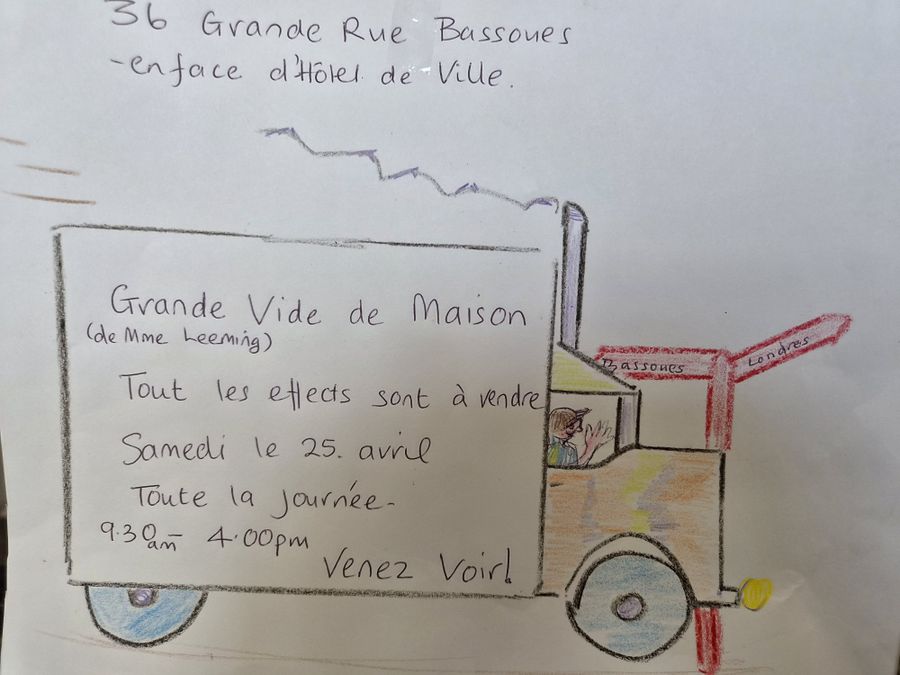 36 Grande Rue Bassoues
-enface d'Hôtel de Ville.
Grande Vide de Maison
(de Mme Leeming)
Tout les effects sont à vendre
Samedi le 25. avril
Toute la Journée-
9.30am - 4.00pm
Venez Voir!
Bassoues
Londres